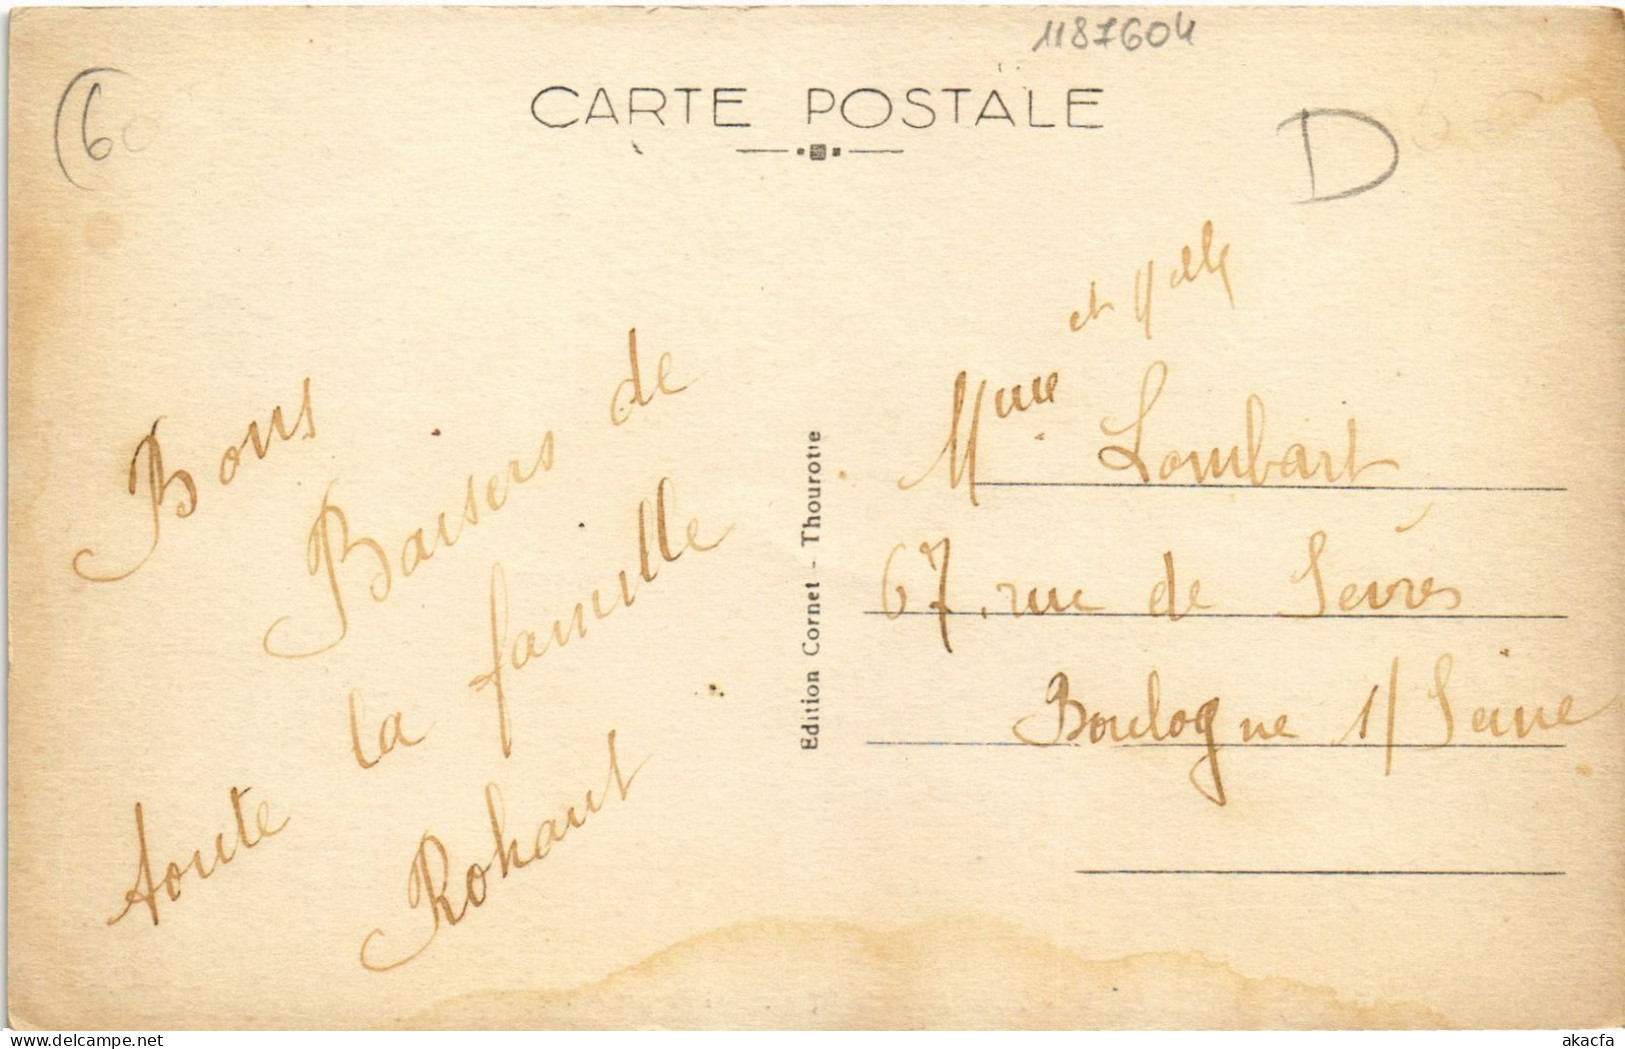 1187604
(60
CARTE POSTALE
D
Bons
Baisers de
toute la famille
Rohaut
Edition Cornet - Thourotte
et Melle
Mme Lombart
67, rue de Sèvres
Boulogne s/ Seine
delcampe.net
akacfa